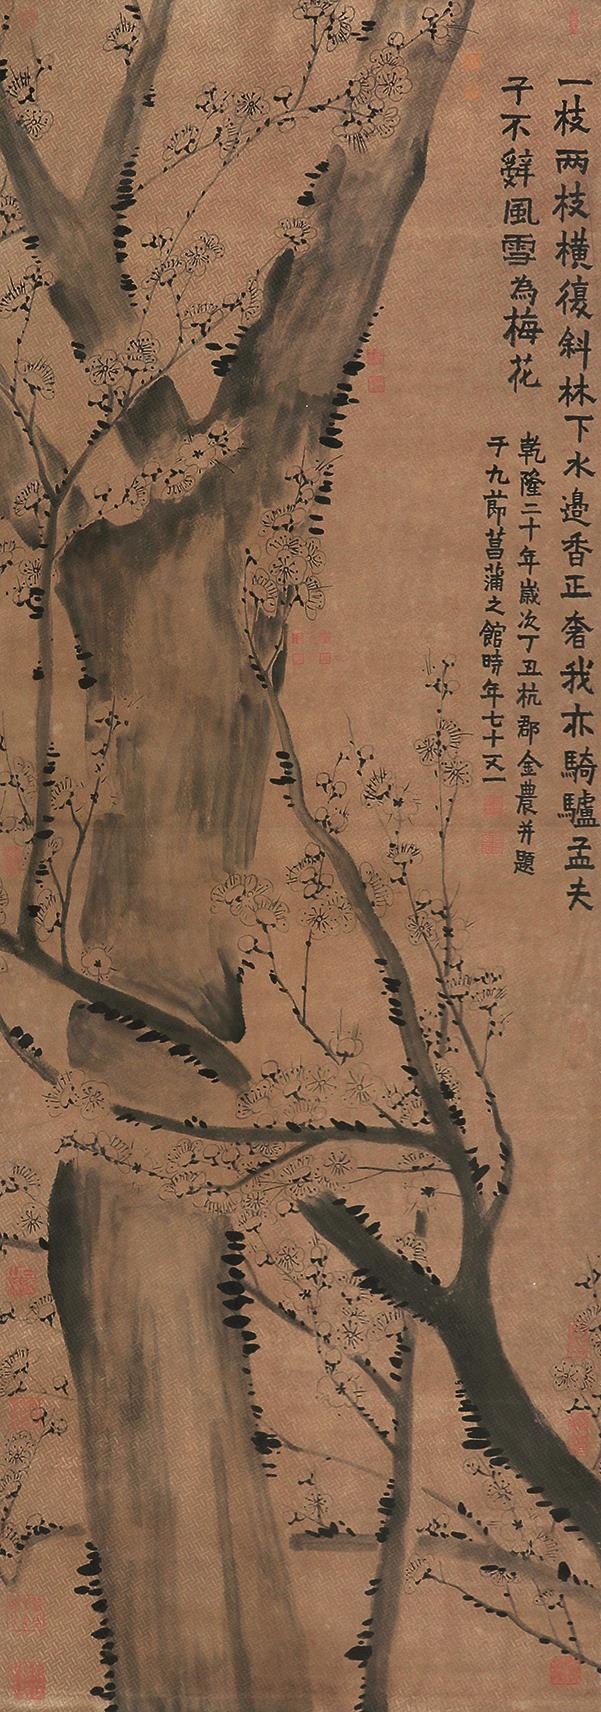 一枝兩枝橫復斜林下水邊香正奢我亦騎驢孟夫
子不辭風雪為梅花
乾隆二十年歲次丁丑杭郡金農并題
于九節菖蒲之館時年七十又一